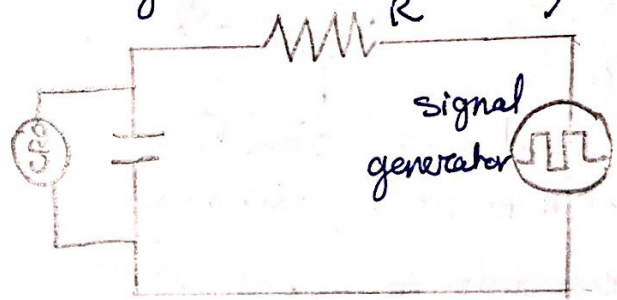 R
signal
generator
CRO